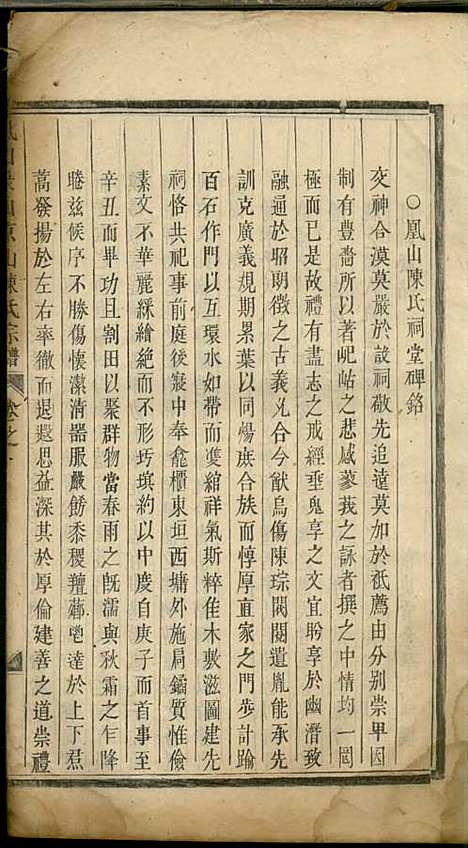 ○鳳山陳氏祠堂碑銘
交神合漠莫嚴於設祠敬先追遠莫加於祗薦由分別崇卑因
制有豊嗇所以著屺岵之悲感蓼莪之詠者撰之中情均一罔
極而已是故禮有盡志之戒經垂鬼享之文宜肹享於幽潛致
融通於昭明徵之古義允合今猷烏傷陳琮閥閱遺胤能承先
訓克廣義規期累葉以同愓庶合族而惇厚直家之門步計踰
百石作門以互環水如帶而雙綰祥氣斯粹佳木敷滋圖建先
祠恪共祀事前庭後寢中奉龕櫃東垣西墉外施扄鐍質惟儉
素文不華麗綵繪絶而不形圬塓約以中度自庚子而首事至
辛丑而畢功且割田以聚群物當春雨之既濡與秋霜之乍降
睠兹候序不勝傷懷潔清器服嚴餝黍稷羶薌鬯達於上下焄
蒿發揚於左右率徹而退遐思益深其於厚倫建善之道崇禮
山陳氏宗譜
卷之